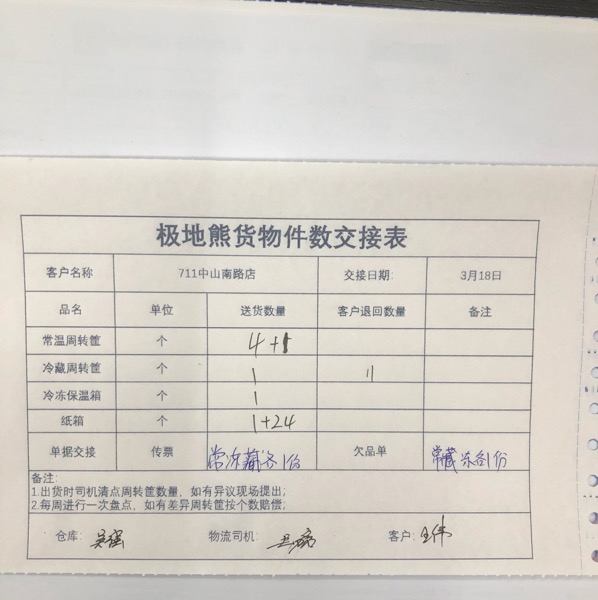 极地熊货物件数交接表
客户名称 711中山南路店 交接日期: 3月18日
品名 单位 送货数量 客户退回数量 备注
常温周转筐 个 4+1
冷藏周转筐 个 1 11
冷冻保温箱 个 1
纸箱 个 1+24
单据交接 传票 常冻藏各1份 欠品单 常藏冻各1份
备注:
1.出货时司机清点周转筐数量，如有异议现场提出;
2.每周进行一次盘点，如有差异周转筐按个数赔偿;
仓库: 吴强 物流司机: 客户: 王伟